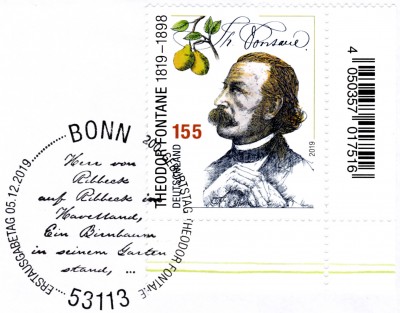 Th. Fontane.
THEODOR FONTANE 1819–1898
DEUTSCHLAND
155
2019
4 050357 017516
BONN
200. GEBURTSTAG THEODOR FONTANE
ERSTAUSGABETAG 05.12.2019
Herr von
Ribbeck
auf Ribbeck im
Havelland,
Ein Birnbaum
in seinem Garten
stand, ...
53113